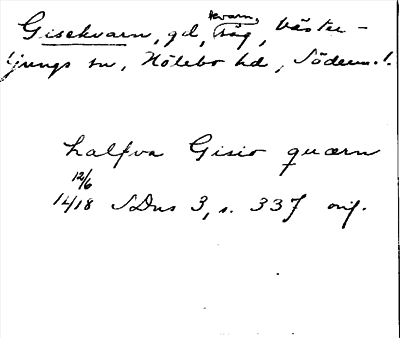 kvarn,
Gisekvarn, gd, såg, Väster-
ljungs sn, Hölebo hd, Söderm.l.
halfva Gisio quærn
12/6
1418 SDns 3, s. 337 orig.